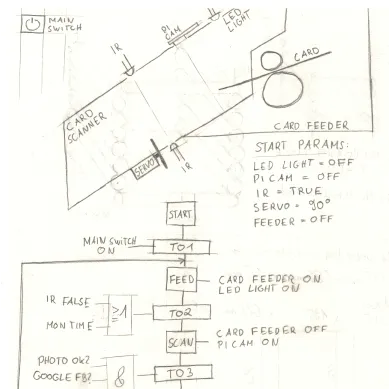 MAIN
SWITCH
IR
PI
CAM
LED
LIGHT
CARD
CARD
SCANNER
SERVO
IR
CARD FEEDER
START PARAMS:
LED LIGHT = OFF
PI CAM = OFF
IR = TRUE
SERVO = 90°
FEEDER = OFF
START
MAIN SWITCH
ON
TO1
FEED
CARD FEEDER ON
LED LIGHT ON
IR FALSE
MON TIME
≥1
TO2
SCAN
CARD FEEDER OFF
PI CAM ON
PHOTO OK?
GOOGLE FB?
&
TO3